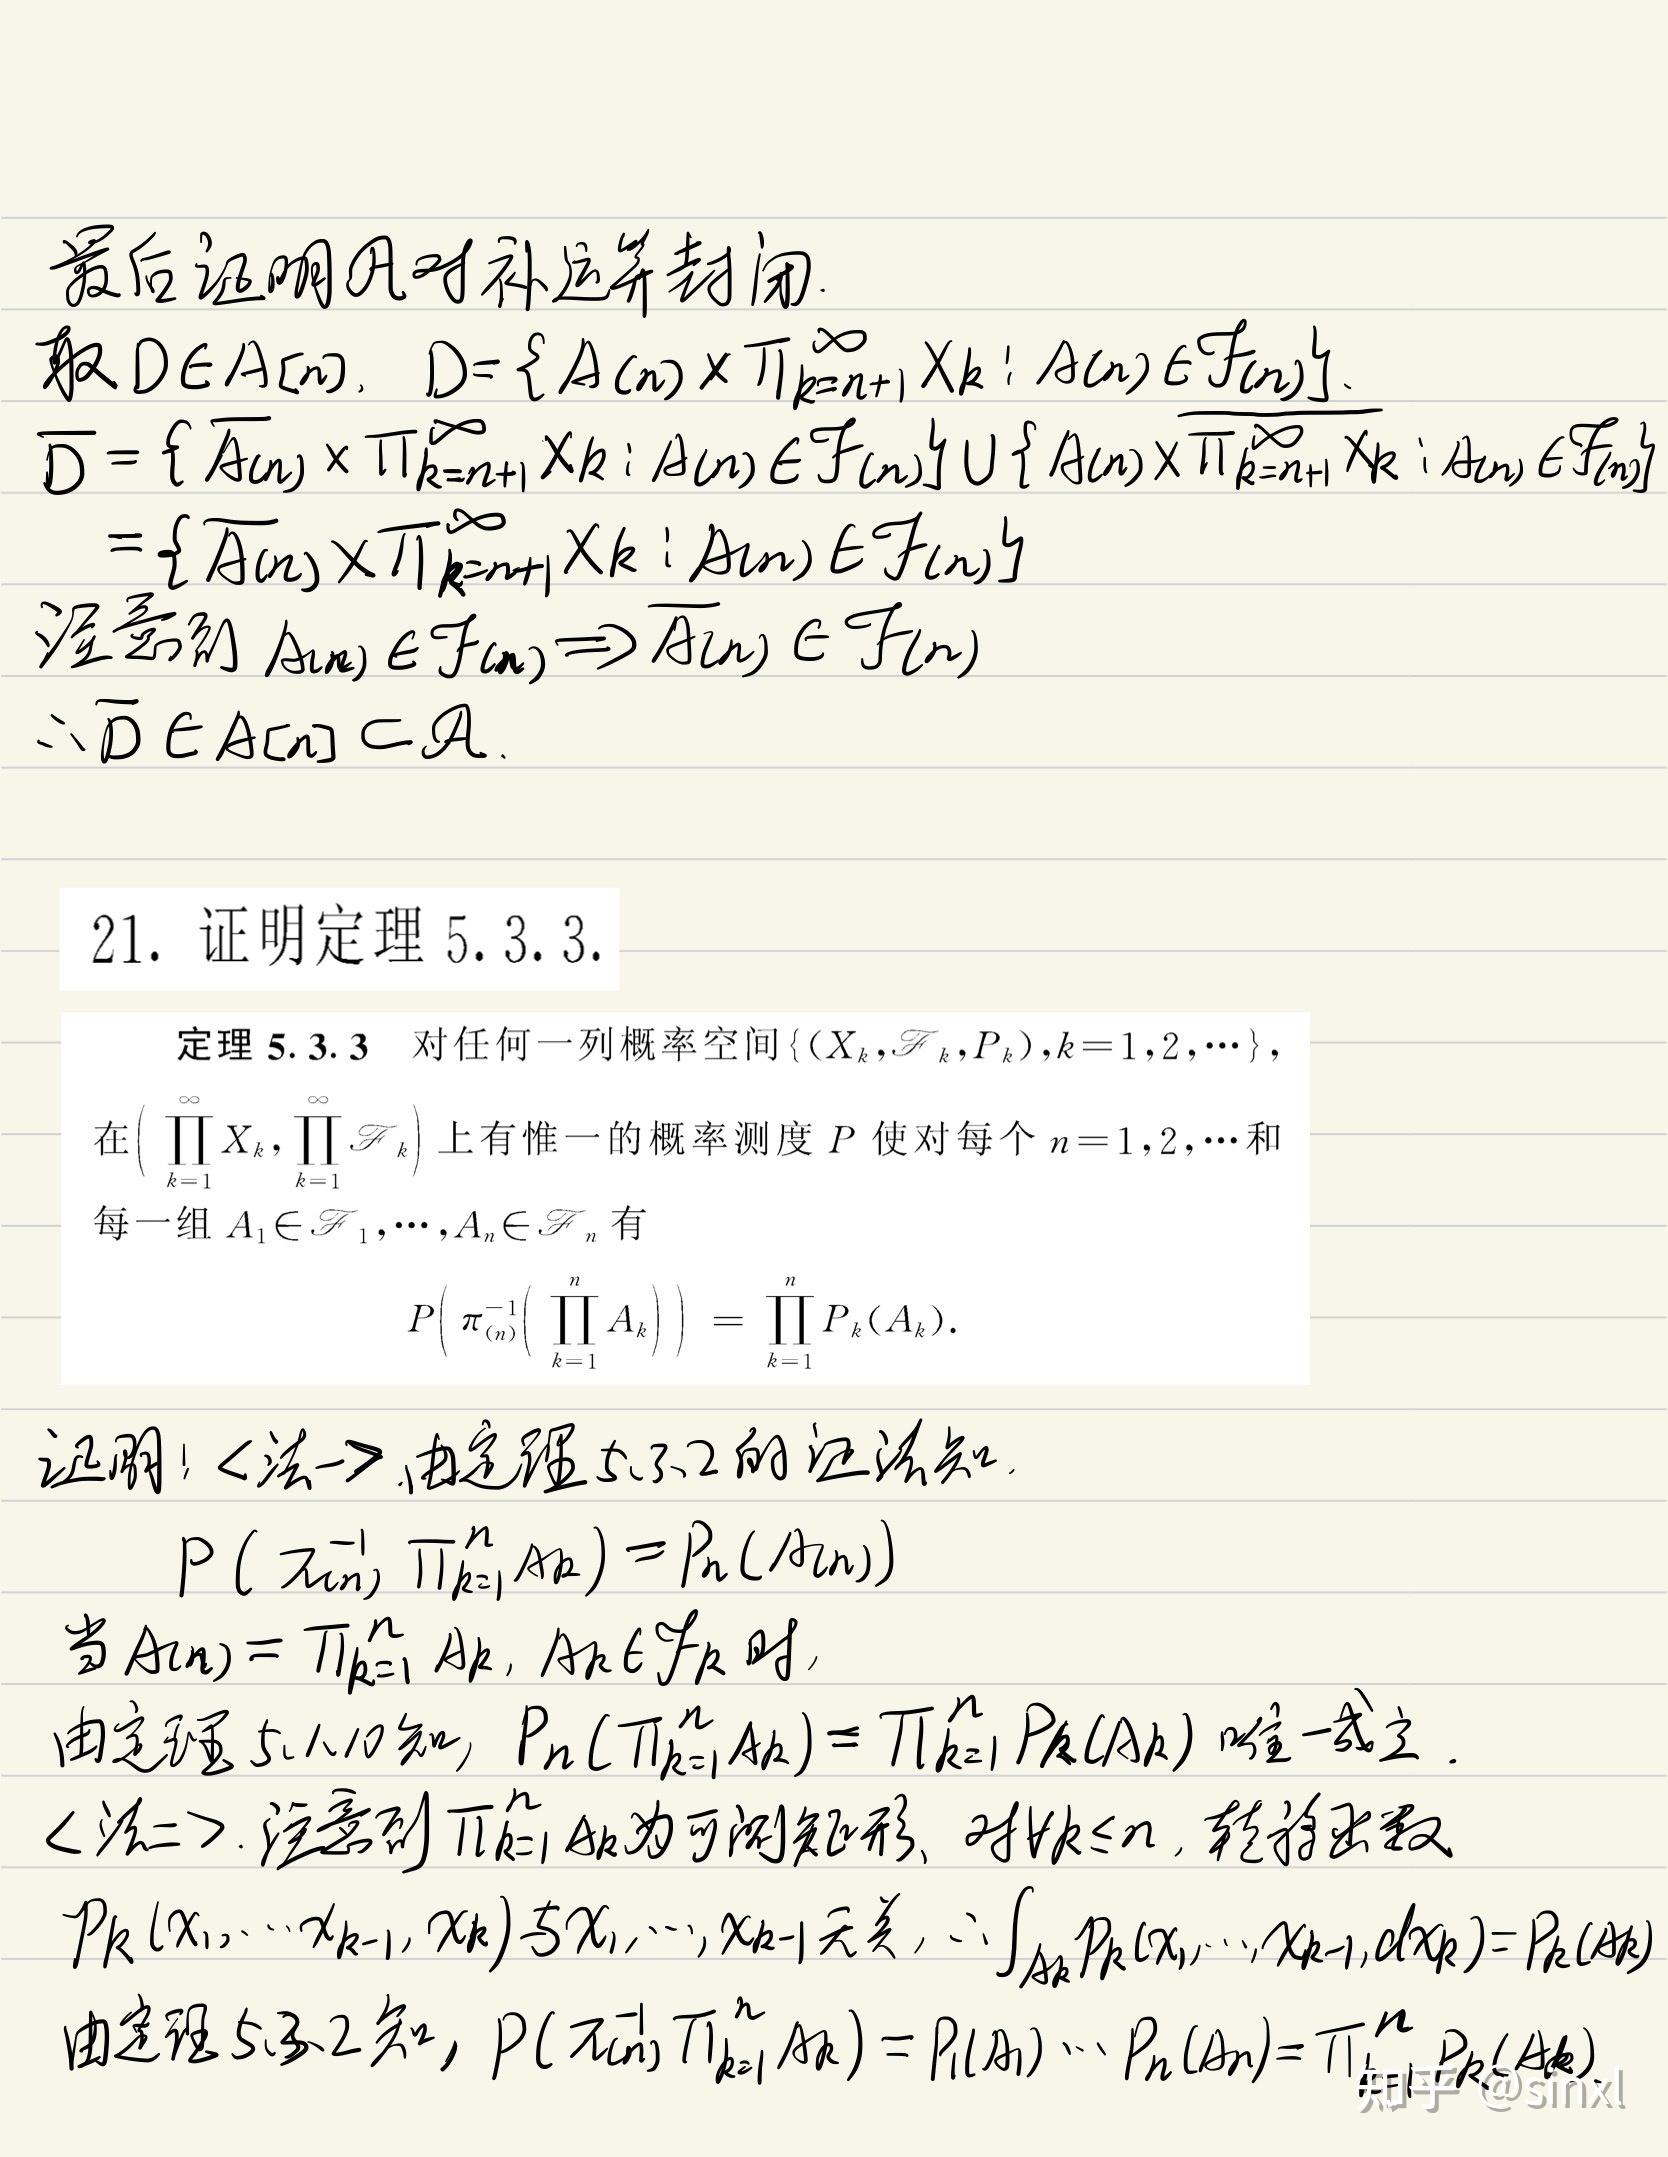 最后证明𝒜对补运算封闭.
取D∈A[n], D={A(n)×∏_{k=n+1}^∞ Xk : A(n)∈ℱ(n)}.
D̅={A̅(n)×∏_{k=n+1}^∞ Xk : A(n)∈ℱ(n)}∪{A(n)×\overline{∏_{k=n+1}^∞ Xk} : A(n)∈ℱ(n)}
={A̅(n)×∏_{k=n+1}^∞ Xk : A(n)∈ℱ(n)}
注意到 A(n)∈ℱ(n)⇒A̅(n)∈ℱ(n)
∴D̅∈A[n]⊂𝒜.
21. 证明定理 5.3.3.
定理 5.3.3 对任何一列概率空间{(X_k,ℱ_k,P_k),k=1,2,⋯},
在(∏_{k=1}^∞ X_k,∏_{k=1}^∞ ℱ_k)上有惟一的概率测度 P 使对每个 n=1,2,⋯和
每一组 A_1∈ℱ_1,⋯,A_n∈ℱ_n 有
P(π_{(n)}^{-1}(∏_{k=1}^n A_k)) = ∏_{k=1}^n P_k(A_k).
证明: <法一>.由定理5.3.2的证法知.
P(π_{(n)}^{-1} ∏_{k=1}^n Ak)=Pn(A(n))
当A(n)=∏_{k=1}^n Ak, Ak∈ℱk时,
由定理5.1.10知, Pn(∏_{k=1}^n Ak)=∏_{k=1}^n Pk(Ak) 唯一成立.
<法二>.注意到∏_{k=1}^n Ak为可测矩形、对∀k≤n, 转移函数
Pk(x1,⋯xk-1, xk)与x1,⋯,xk-1无关, ∴∫_{Ak}Pk(x1,⋯,xk-1,dxk)=Pk(Ak)
由定理5.3.2知, P(π_{(n)}^{-1}∏_{k=1}^n Ak)=P1(A1)⋯Pn(An)=∏_{k=1}^n Pk(Ak).
知乎 @sinxl